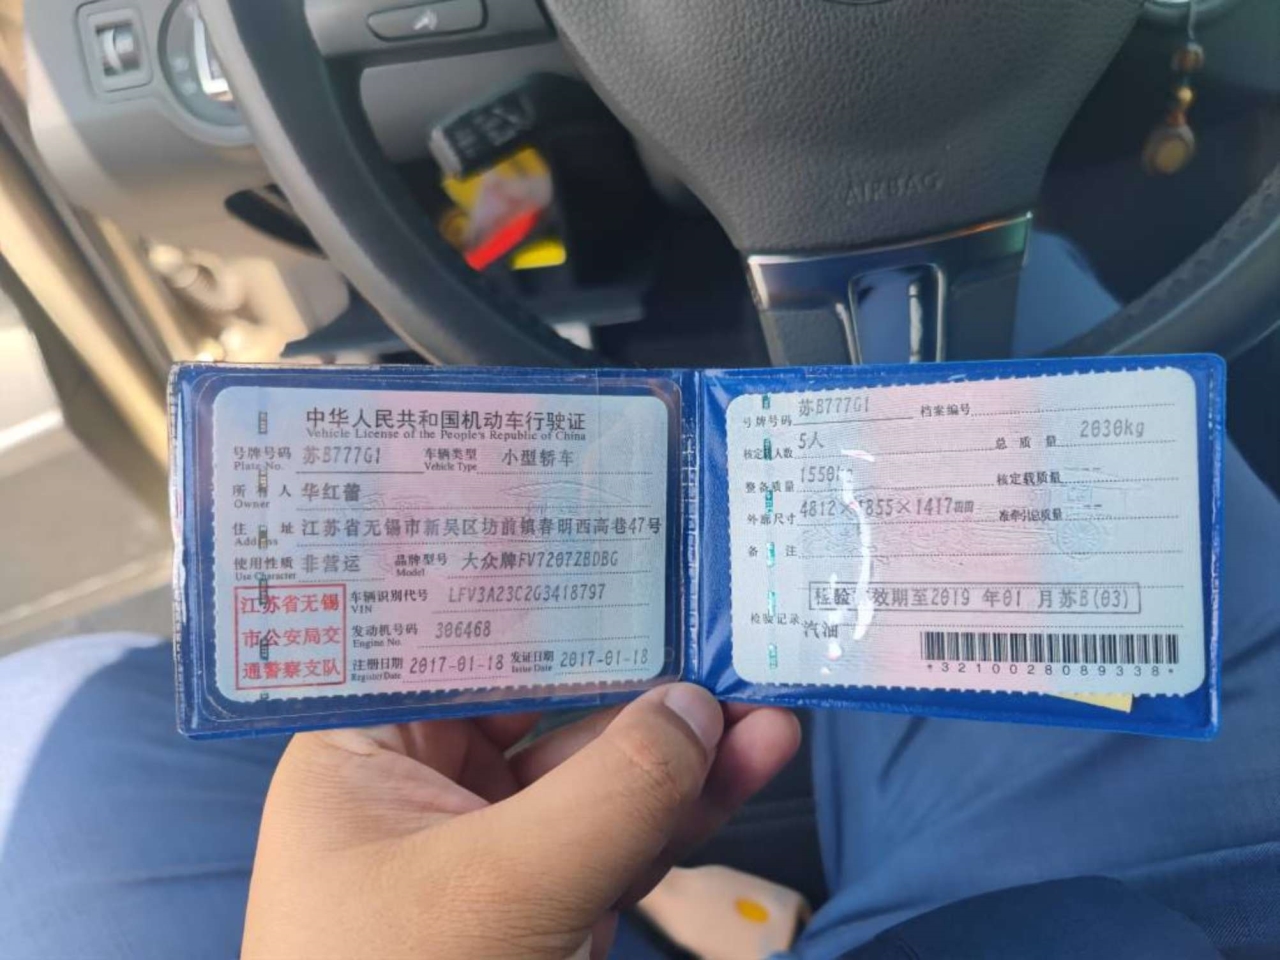 AIRBAG
中华人民共和国机动车行驶证
Vehicle License of the People's Republic of China
号牌号码 苏B777G1 车辆类型 小型轿车
Plate No. Vehicle Type
所有人 华红蕾
Owner
住址 江苏省无锡市新吴区坊前镇春明西高巷47号
Address
使用性质 非营运 品牌型号 大众牌FV7207ZBDBG
Use Character Model
江苏省无锡
市公安局交
通警察支队
车辆识别代号 LFV3A23C2G3418797
VIN
发动机号码 306468
Engine No.
注册日期 2017-01-18 发证日期 2017-01-18
Register Date Issue Date
号牌号码 苏B777G1 档案编号
核定载人数 5人 总质量 2030kg
整备质量 1550kg 核定载质量 --
外廓尺寸 4812×1855×1417mm 准牵引总质量 --
备注
检验有效期至2019 年01 月苏B(03)
检验记录 汽油
*3210028089338*